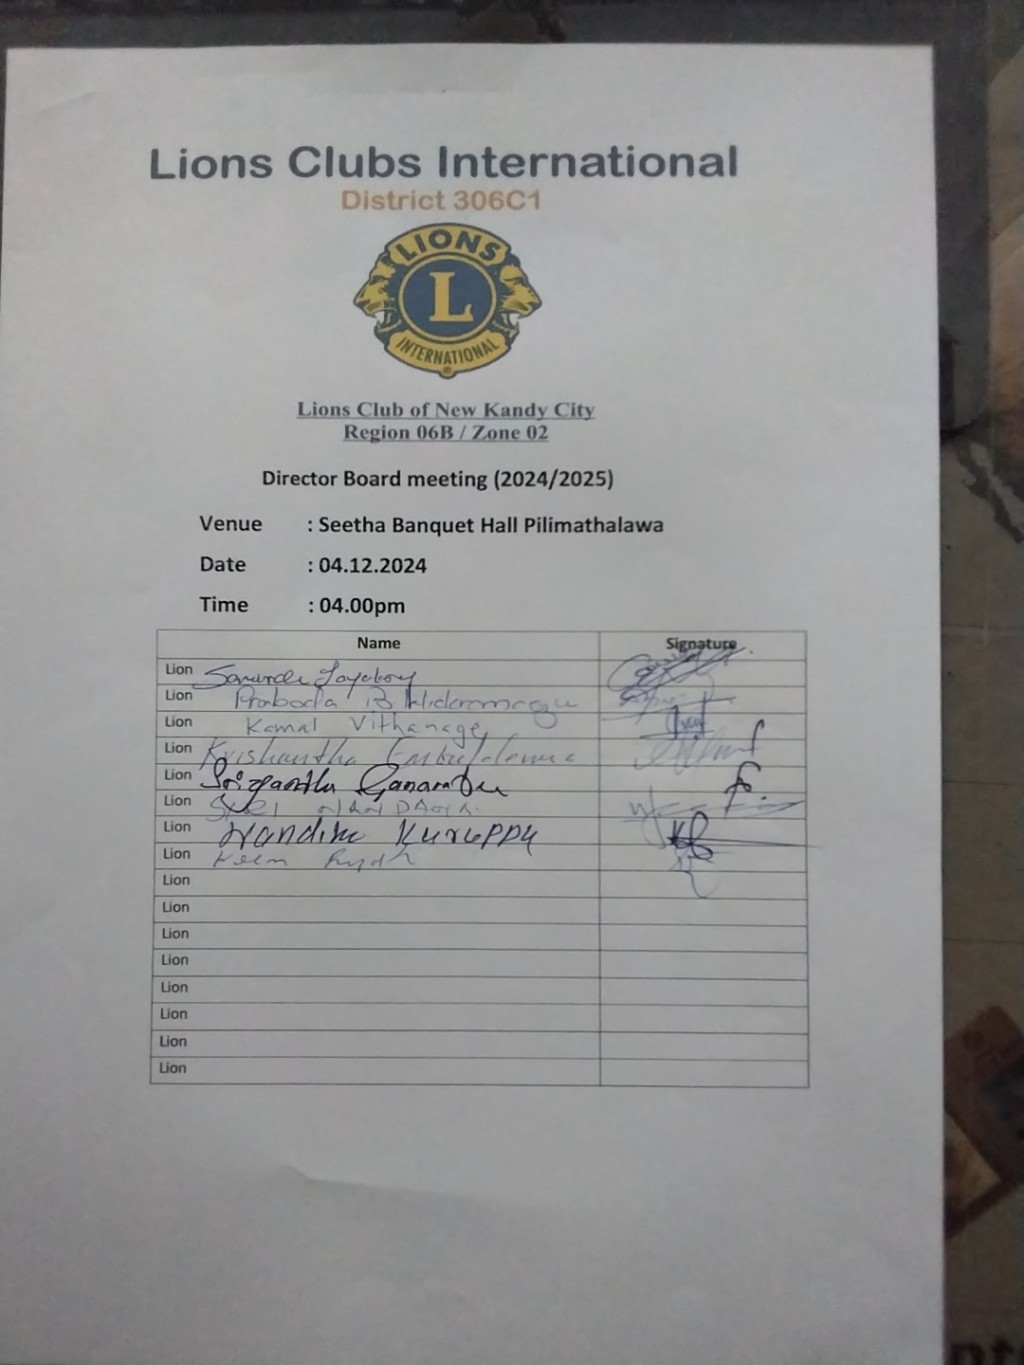 Lions Clubs International
District 306C1
LIONS
L
INTERNATIONAL
Lions Club of New Kandy City
Region 06B / Zone 02
Director Board meeting (2024/2025)
Venue : Seetha Banquet Hall Pilimathalawa
Date : 04.12.2024
Time : 04.00pm
Name Signature
Lion
Lion Praboda B
Lion Kamal Vithanage
Lion Krishantha
Lion
Lion
Lion Kuruppu
Lion
Lion
Lion
Lion
Lion
Lion
Lion
Lion
Lion